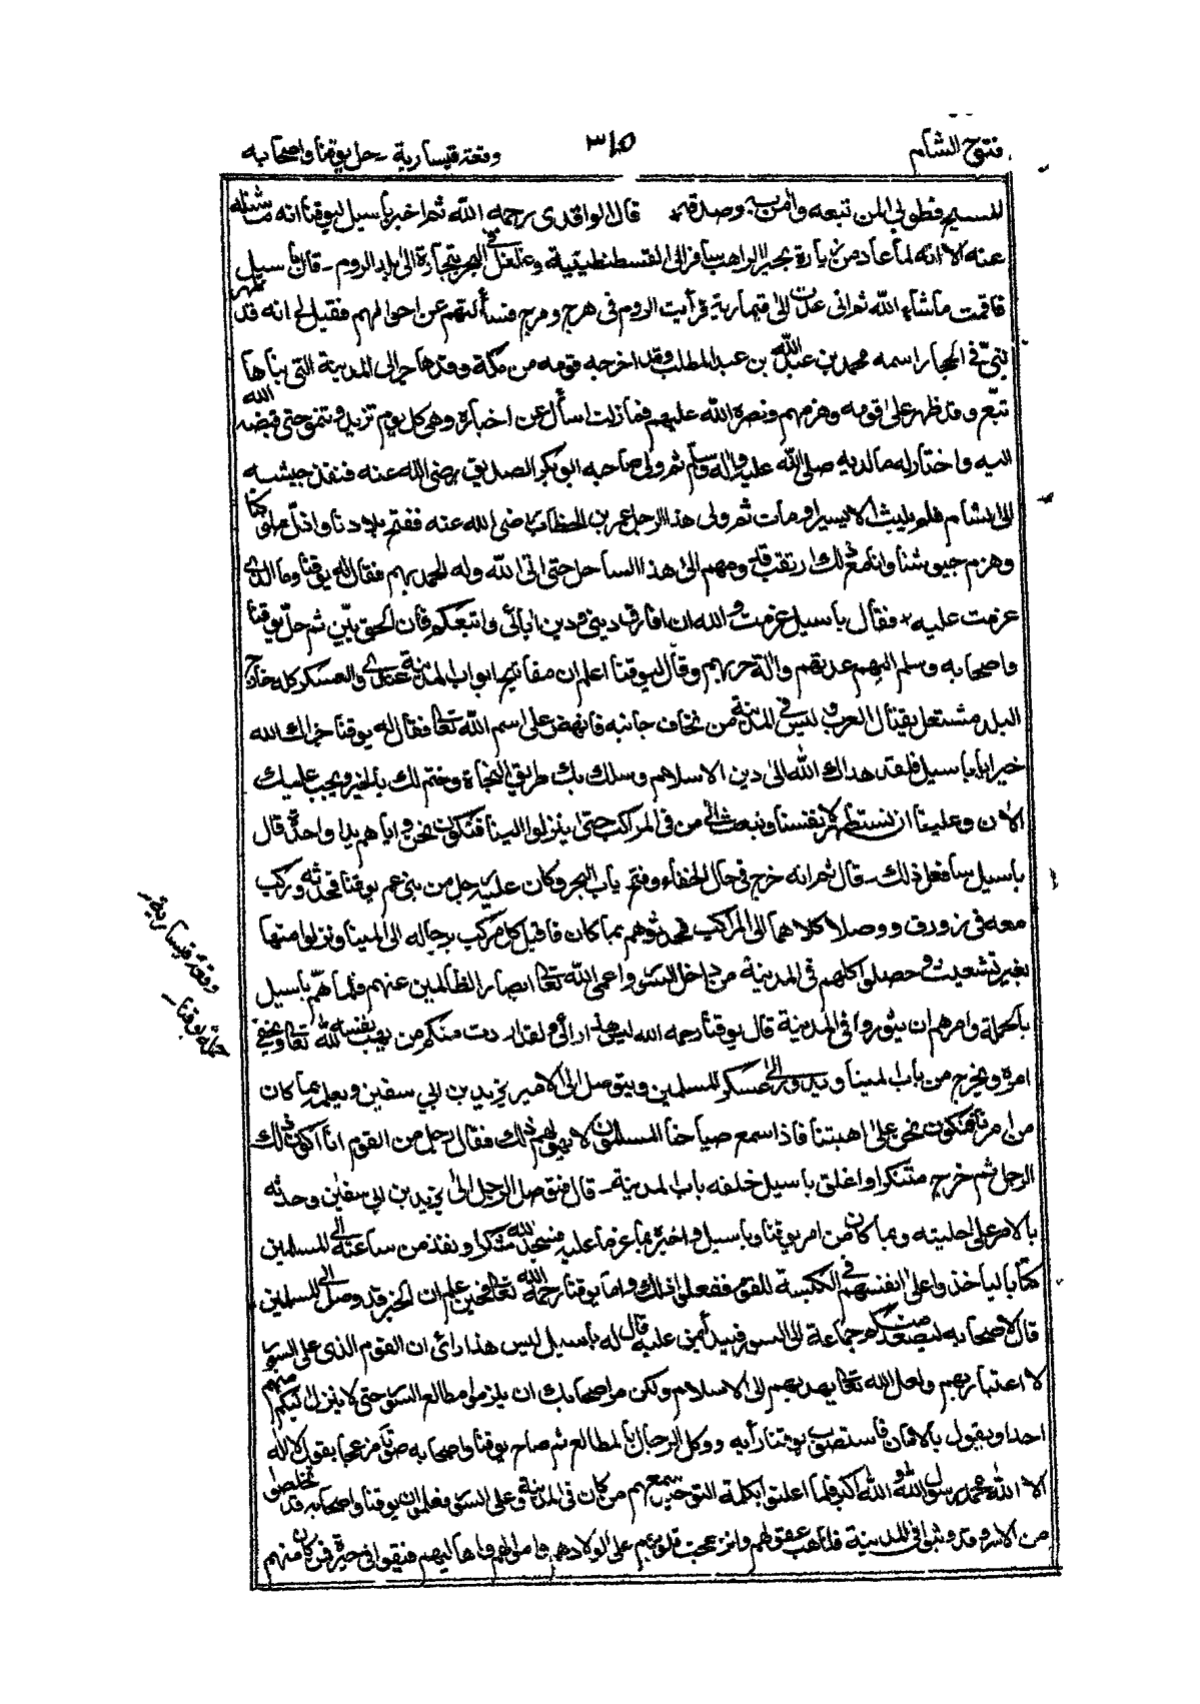 فتوح الشام
٣١٥
وقعة قيسارية - حل يوقنا واصحابه
للمسيح فطوبى لمن تبعه وآمن به وصدقه قال الواقدى رحمه الله ثم اخبر باسيل ليوقنا انه
عنه الا انه لما عاد من زيارة بحيرا الراهب سافر الى القسطنطينية وغلغل فى البحر بتجارة الى بلاد الروم - قال باسيل
فاقمت ماشاء الله ثم انى عدت الى قيسارية فرأيت الروم فى هرج ومرج فسألتهم عن احوالهم فقيل لى انه قد ظهر
نبىّ فى الحجاز اسمه محمد بن عبد الله بن عبد المطلب وقد اخرجه قومه من مكة وقد هاجر الى المدينة التى بناها
تبّع وقد ظهر على قومه وهزمهم ونصره الله عليهم فما زلت اسأل عن اخباره وهى كل يوم تزيد وتنمو حتى قبضه الله
اليه واختار له ما لديه صلى الله عليه واله وسلم ثم ولى صاحبه ابو بكر الصديق رضى الله عنه فنفذ جيشه
الى الشام فلم يلبث الا يسيرا ومات ثم ولى هذا الرجل عمر بن الخطاب رضى الله عنه ففتح بلادنا واذلّ ملوكنا
وهزم جيوشنا وانا مع ذلك ارتقب قدومهم الى هذا الساحل حتى اتى الله وله الحمد بهم فقال له يوقنا وما الذى
عزمت عليه * فقال باسيل عزمت والله ان افارق دينى ودين ابائى واتبعكم فان الحق بيّن ثم حلّ يوقنا
واصحابه وسلم اليهم عدتهم وآلة حربهم وقال ليوقنا اعلم ان مفاتيح ابواب المدينة عندى والعسكر كله خارج
البلد مشتغل بقتال العرب وليس فى المدينة من نخاف جانبه فانهض على اسم الله تعالى فقال له يوقنا جزاك الله
خيرا يا باسيل فلقد هداك الله الى دين الاسلام وسلك بك طريق النجاة وختم لك بالخير ويجب عليك
الآن وعلينا ان نستظهر لانفسنا ونبعث الى من فى المراكب حتى ينزلوا الينا فنكون نحن واياهم يدا واحدة قال
باسيل سأفعل ذلك - قال ثم انه خرج فى حال الخفاء وفتح باب البحر وكان عليه رجل من بنى عم يوقنا فحدثه وركب
معه فى زورق ووصلا كلاهما الى المراكب فحدثوهم بما كان فاقبل كل مركب برجاله الى المينا ونزلوا منها
بغير تشعيث وحصلوا كلهم فى المدينة من داخل السور واعمى الله تعالى ابصار الظالمين عنهم فلما هم باسيل
بالحملة وامرهم ان يثوروا فى المدينة قال يوقنا رحمه الله ليس هذا رأى ولقد اردت منكم من يهب نفسه لله تعالى ويخفى
امره ويخرج من باب المينا ويدور الى عسكر المسلمين ويتوصل الى الامير يزيد بن ابى سفين ويعلمه بما كان
من امرنا فنكون نحن على اهبتنا فاذا سمع صياحنا المسلمون لا يهولهم ذلك فقال رجل من القوم انا اكون ذلك
الرجل ثم خرج متنكرا واغلق باسيل خلفه باب المدينة - قال فتوصل الرجل الى يزيد بن ابى سفين وحدثه
بالامر على جليته وبما كان من امر يوقنا وباسيل واخبره بما عزما عليه فسجد لله شكرا ونفذ من ساعته الى المسلمين
كتابا ليأخذوا على انفسهم فى الكبسة للقوم ففعلوا ذلك واما يوقنا رحمه الله تعالى فحين علم ان الخبر قد وصل الى المسلمين
قال لاصحابه ليصعد منكم جماعة الى السور فيبيد أمن عليه قال له باسيل ليس هذا رائى ان القوم الذى على السور
لا اعتبار بهم ولعل الله تعالى يهديهم الى الاسلام ولكن مر اصحابك ان يلزموا مطالع السور حتى لا ينزل اليكم منهم
احدا ويقول بالامان فاستصوب يوقنا رأيه ووكل الرجال بالمطالع ثم صاح يوقنا واصحابه صوتا مزعجا بقول لا اله
الا الله محمد رسول الله والله اكبر فلما اعلنوا بكلمة التوحيد سمعهم من كان فى المدينة وعلى السور فعلموا ان يوقنا واصحابه قد تخلصوا
من الاسر وقد وثبوا فى المدينة فذهب عقولهم وانزعجت قلوبهم على اولادهم واموالهم واهاليهم فبقوا فى حيرة فمن كان منهم
وقعة قيسارية
حيلة يوقنا